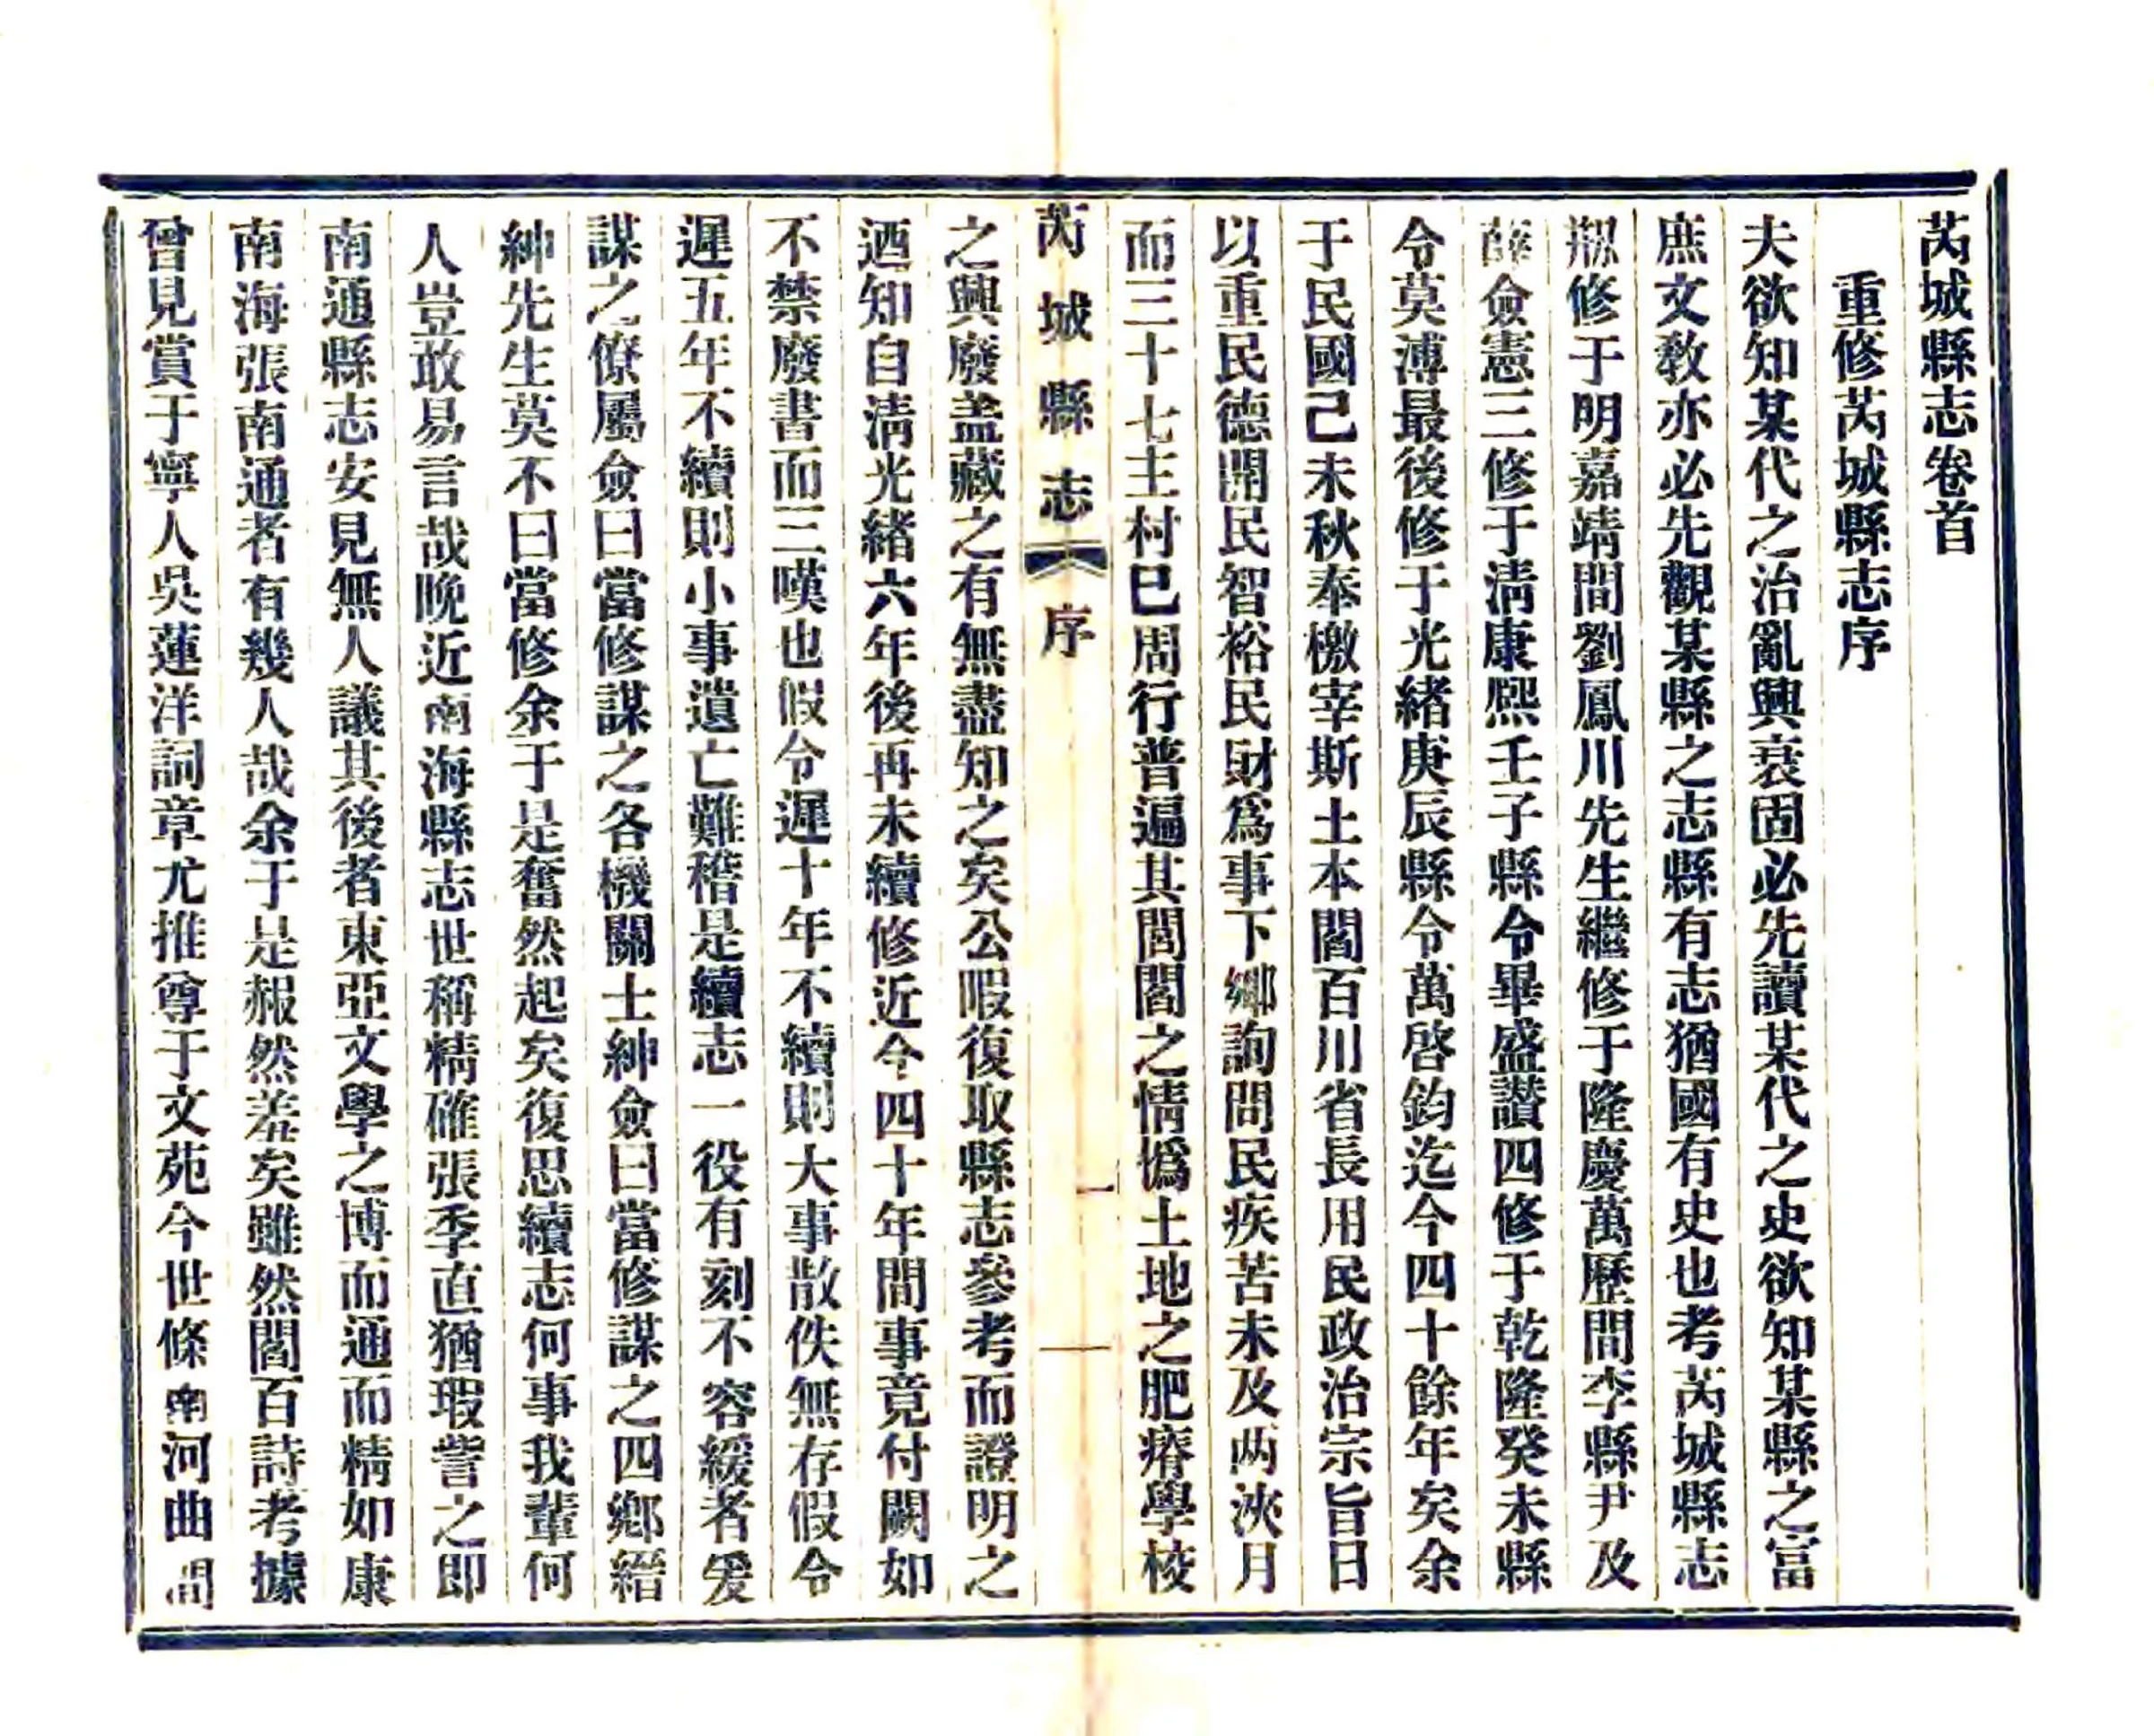 芮城縣志卷首
重修芮城縣志序
夫欲知某代之治亂興衰固必先讀某代之史欲知某縣之富
庶文教亦必先觀某縣之志縣有志猶國有史也考芮城縣志
剏修于明嘉靖間劉鳳川先生繼修于隆慶萬歷間李縣尹及
薛僉憲三修于淸康熙壬子縣令畢盛讚四修于乾隆癸未縣
令莫溥最後修于光緒庚辰縣令萬啓鈞迄今四十餘年矣余
于民國己未秋奉檄宰斯土本閻百川省長用民政治宗旨日
以重民德開民智裕民財爲事下鄉詢問民疾苦未及兩浹月
而三十七主村已周行普遍其閭閻之情僞土地之肥瘠學校
芮城縣志 序 一
之興廢盖藏之有無盡知之矣公暇復取縣志參考而證明之
迺知自淸光緒六年後再未續修近今四十年間事竟付闕如
不禁廢書而三嘆也假令遲十年不續則大事散佚無存假令
遲五年不續則小事遺亡難稽是續志一役有刻不容緩者爰
謀之僚屬僉曰當修謀之各機關士紳僉曰當修謀之四鄉縉
紳先生莫不曰當修余于是奮然起矣復思續志何事我輩何
人豈敢易言哉晩近南海縣志世稱精確張季直猶瑕訾之即
南通縣志安見無人議其後者東亞文學之博而通而精如康
南海張南通者有幾人哉余于是赧然羞矣雖然閻百詩考據
曾見賞于寧人吳蓮洋詞章尤推尊于文苑今世條南河曲間